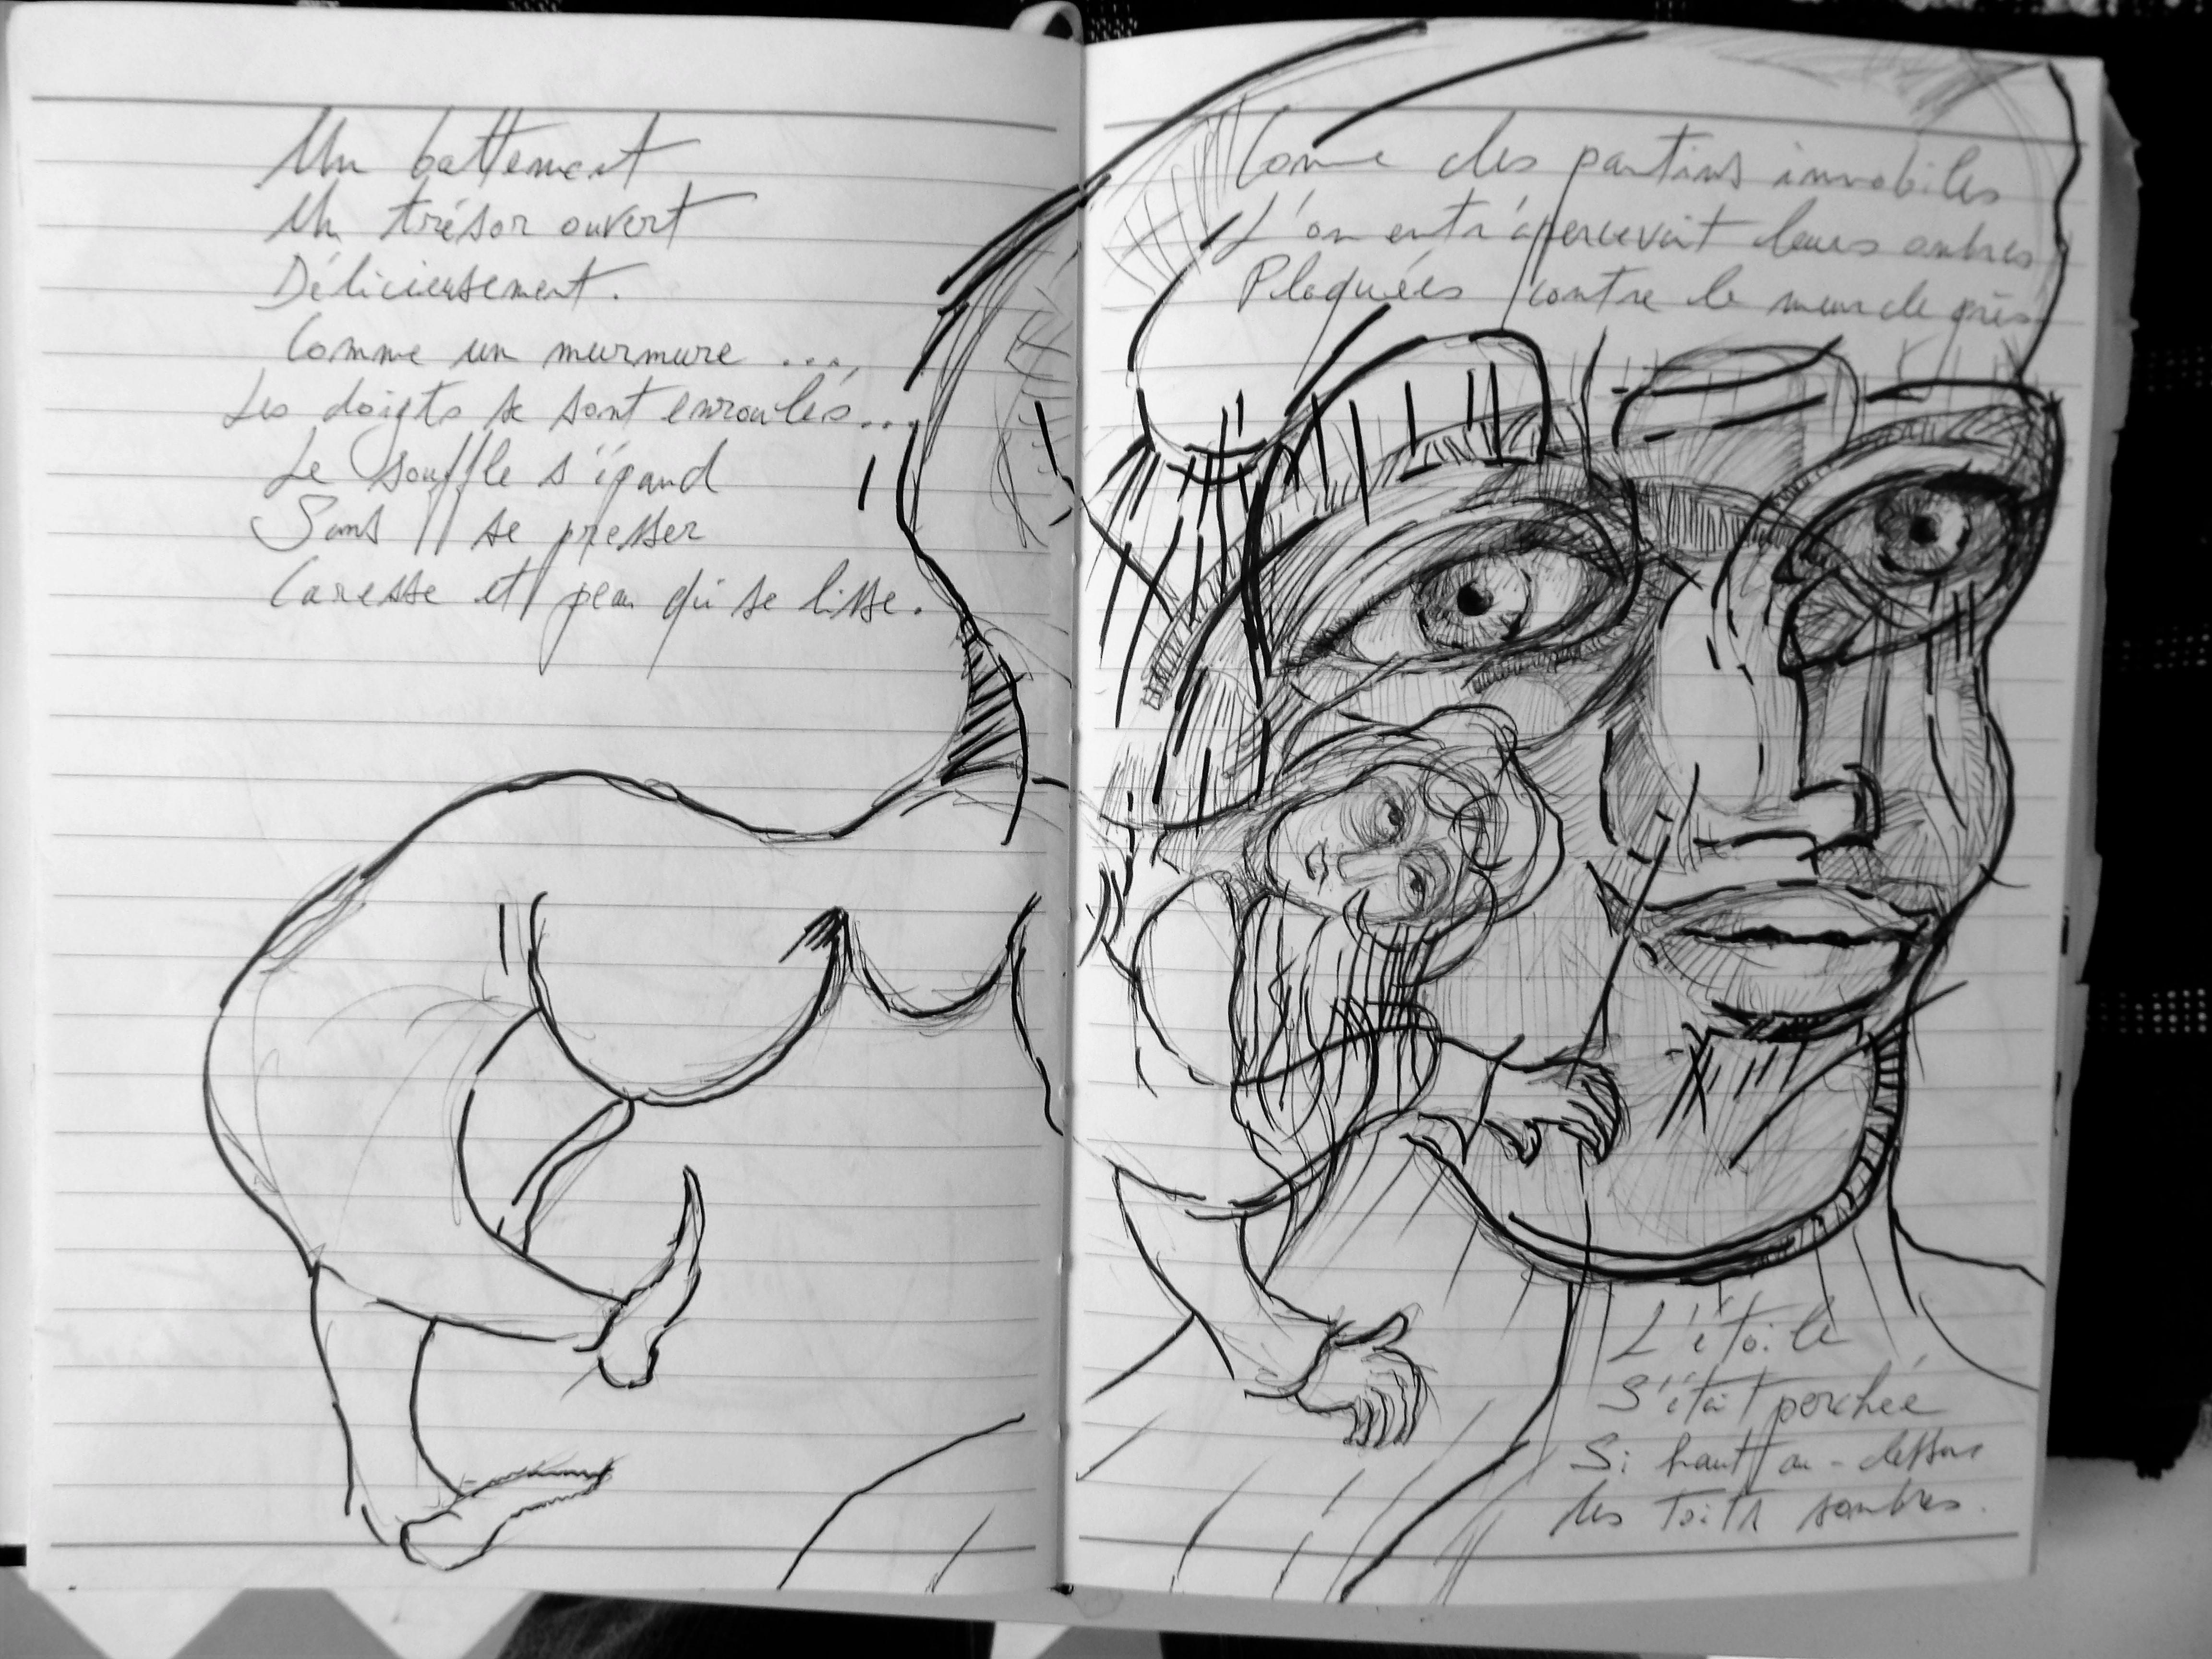 Un battement
Un trésor ouvert
Délicieusement.
Comme un murmure ...,
Les doigts se sont enroulés...
Le souffle s'épand
Sans se presser
Caresse et peau qui se lisse.
Comme des pantins immobiles
L'on entr'apercevait leurs ombres
Plaquées contre le mur de grès
L'étoile
S'était perchée
Si haut au-dessus
des toits sombres.